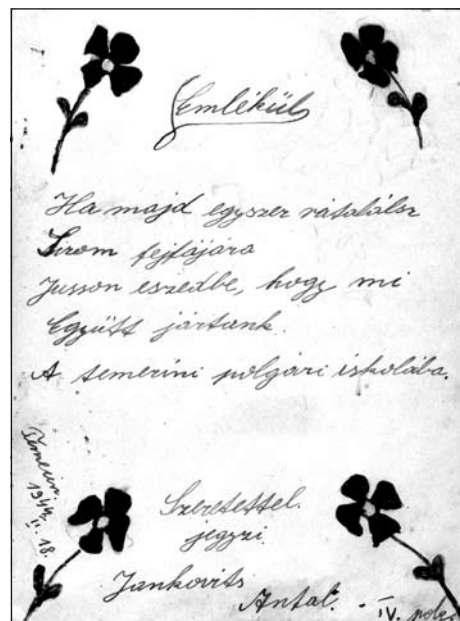 Emlékül
Ha majd egyszer rátalálsz
Sirom fejfájára
Jusson eszedbe, hogy mi
Együtt jártunk.
A temerini polgári iskolába.
Temerin.
1944.
II. 18.
Szeretettel.
jegyzi.
Jankovits
Antal. - IV. polg.